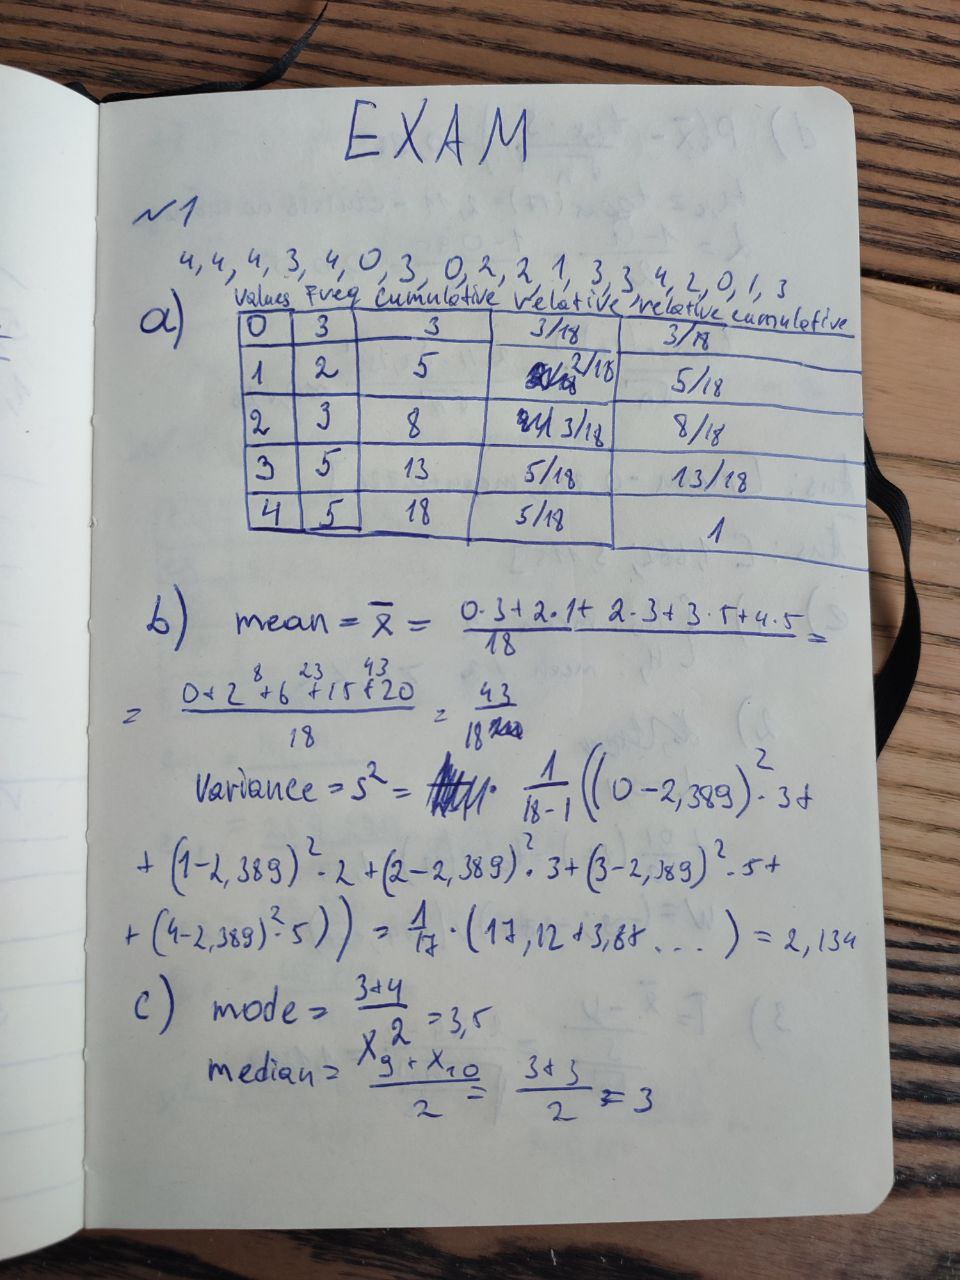 EXAM
№1
4, 4, 4, 3, 4, 0, 3, 0, 2, 2, 1, 3, 3, 4, 2, 0, 1, 3
a) values Freq cumulative relative relative cumulative
0 3 3 3/18 3/18
1 2 5 2/18 5/18
2 3 8 3/18 8/18
3 5 13 5/18 13/18
4 5 18 5/18 1
b) mean = x̄ = (0·3+2·1+2·3+3·5+4·5)/18 =
8 23 43
= (0+2+6+15+20)/18 = 43/18
Variance = s² = 1/(18-1) ((0-2,389)²·3+
+(1-2,389)²·2+(2-2,389)²·3+(3-2,389)²·5+
+(4-2,389)²·5)) = 1/17·(17,12+3,87...) = 2,134
c) mode = (3+4)/2 = 3,5
median = (x₉+x₁₀)/2 = (3+3)/2 = 3